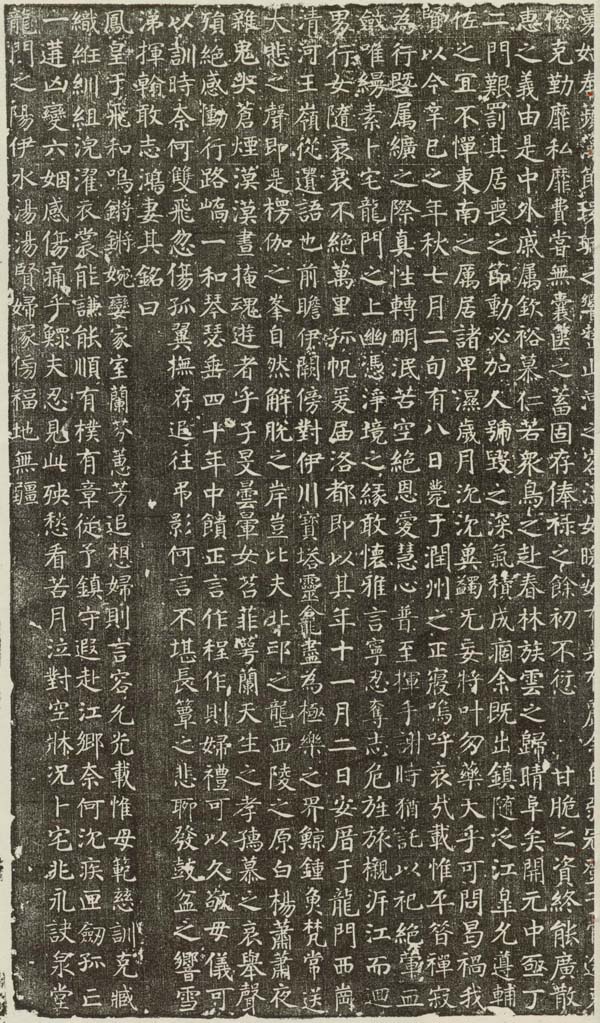 儉克勤靡私靡費嘗無囊篋之蓄固存俸祿之餘初不衒 甘脆之資終能廣散
惠之義由是中外戚属欽裕慕仁若衆鳥之赴春林族雲之歸晴阜矣開元中亟丁
二門艱罰其居喪之節動必加人號毀之深氣積成痼余既出鎮隨泛江皐允遵輔
佐之冝不憚東南之厲居諸卑濕歲月沈沈冀蠲无妄將叶勿藥大乎可問曷禍我
賢以今辛巳之年秋七月二旬有八日薨于潤州之正寢嗚呼哀哉載惟平昔禪寂
為行曁属纊之際真性轉明泯苦空絕恩愛慧心普至揮手謝時猶託以祀絕葷血
斂唯縵素卜宅龍門之上幽憑淨境之緣敢懷雅言寧忍奪志危旌旅櫬泝江而迴
男行女隨哀哀不絕萬里孤帆爰届洛都即以其年十一月二日安厝于龍門西崗
清河王嶺從遺語也前瞻伊闕傍對伊川寶塔靈龕盡為極樂之界鯨鍾魚梵常送
大悲之聲即是楞伽之峯自然解脫之岸豈比夫北邙之壟西陵之原白楊蕭蕭夜
雜鬼哭蒼煙漠漠晝掩魂遊者乎子旻曇暈女苕菲萼蘭天生之孝孺慕之哀舉聲
殞絕感慟行路嗚一和琴瑟垂四十年中饋正言作程作則婦禮可以久敬母儀可
以訓時奈何雙飛忽傷孤翼撫存追往弔影何言不堪長簟之悲聊發鼓盆之響雪
涕揮翰敢志鴻妻其銘曰
鳳皇于飛和鳴鏘鏘婉孌家室蘭芬蕙芳追想婦則言容允光載惟母範慈訓克臧
織紝紃組浣濯衣裳能謙能順有樸有章從予鎮守遐赴江鄉奈何沈疾匣劒孤亡
一遘凶變六姻感傷痛乎鰥夫忍見此殃愁看苦月泣對空牀況卜宅兆永訣泉堂
龍門之陽伊水湯湯賢婦冢傍福地無疆